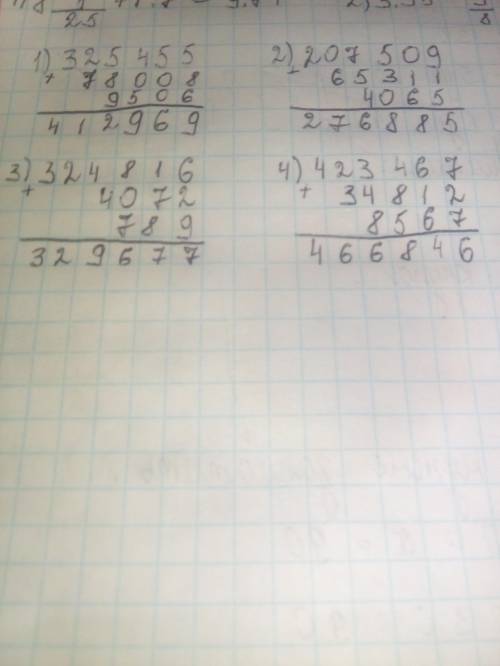 1) 325 455
+ 78008
9506
412969
2) 207 509
+ 65311
4065
276885
3) 324 816
+ 4072
789
329677
4) 423 467
+ 34812
8567
466846